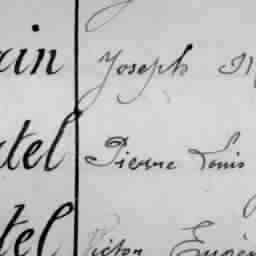 ain Joseph
atel Pierre Louis
tel Victor Eugène